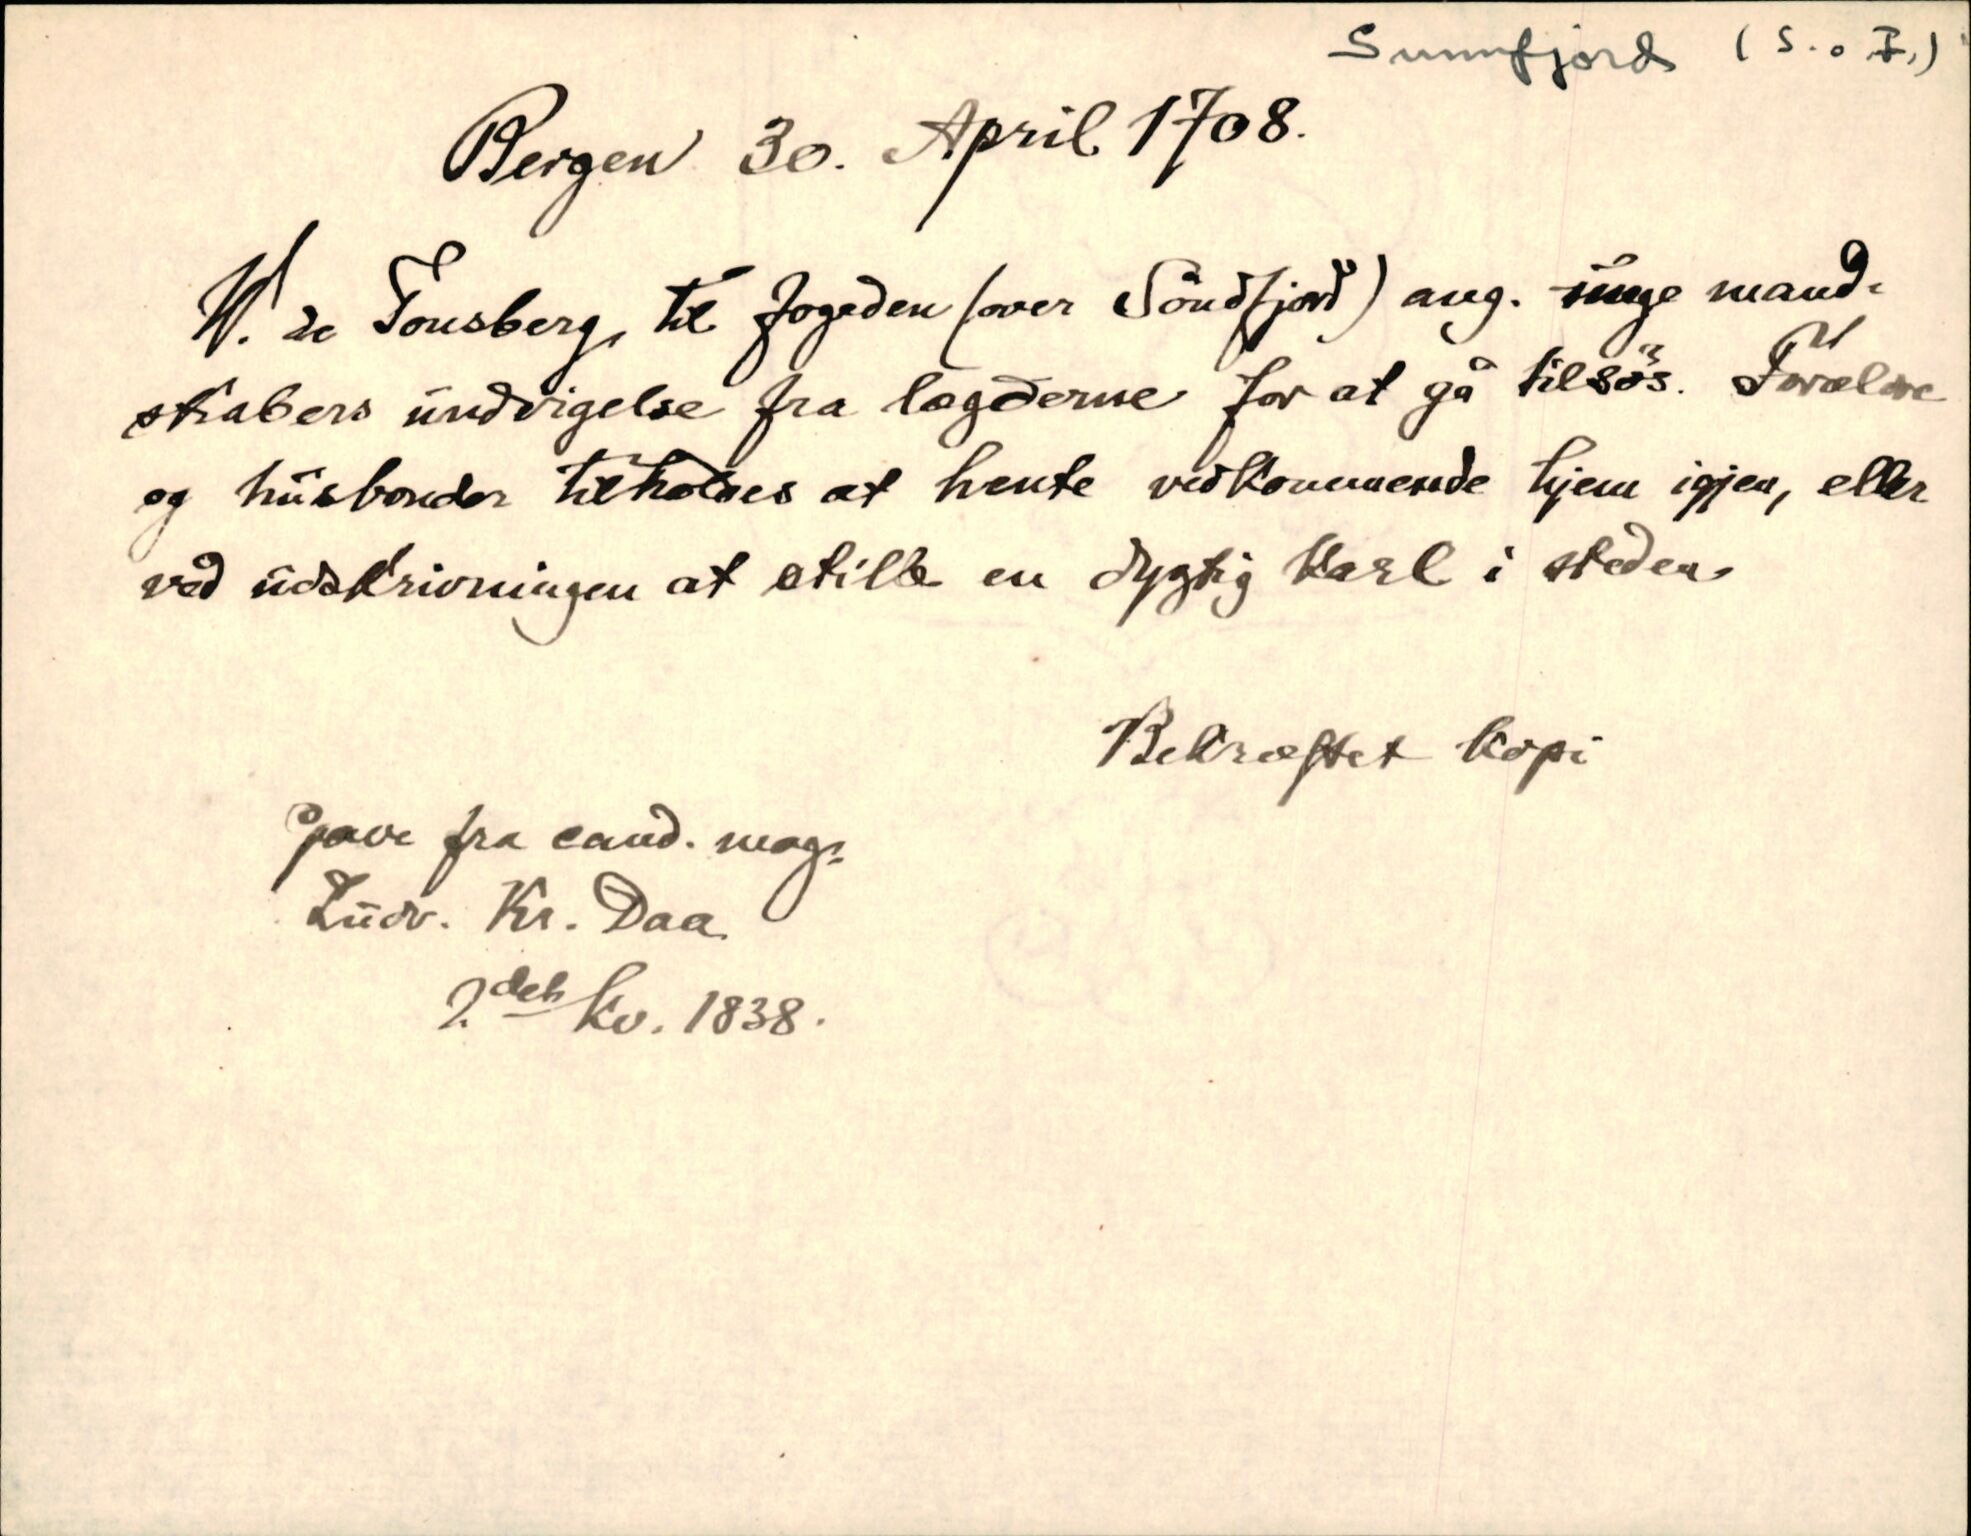 Sunnfjord (S. o. F.)
Bergen 30. April 1708.
W. de Tonsberg, til fogeden (over Söndfjord) ang. unge mand-
skabers undvigelse fra lægderne for at gå tilsös. Forældre
og husbonder tilholdes at hente vedkommende hjem igjen, eller
ved udskrivningen at stille en dygtig karl i steden.
Bekræftet kopi
Gave fra cand. mag.
Ludv. Kr. Daa
2det kv. 1838.